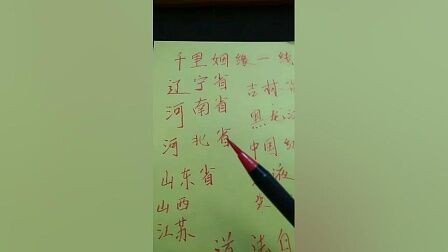 千里姻缘一线
辽宁省 吉林省
河南省 黑龙江
河北省 中国
山东省 液
山西
江苏
道法自